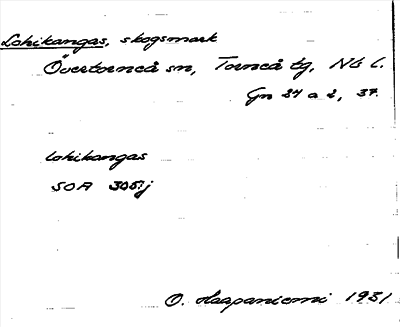 Lohikangas, skogsmark
Övertorneå sn, Torneå tg, Nb l.
Gn 34 a 2, 37.
Lohikangas
SOA 305:j
O. Haapaniemi 1931